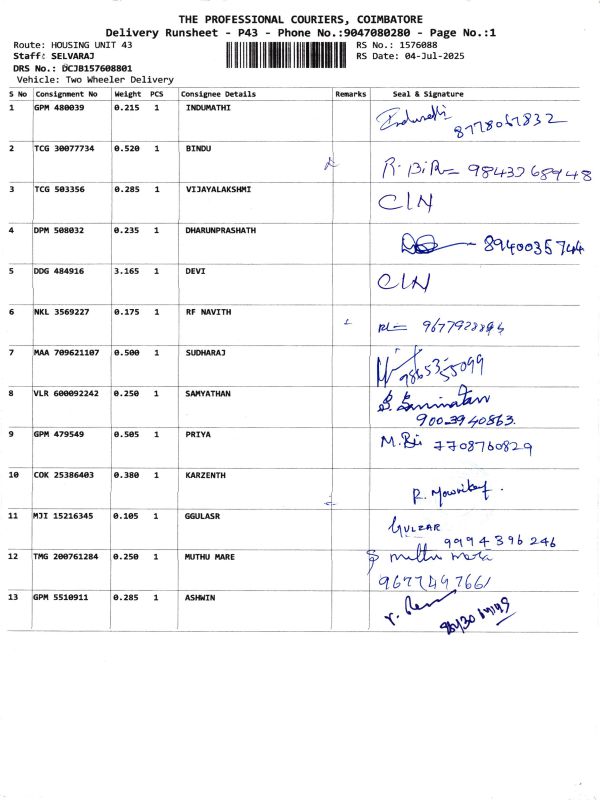 THE PROFESSIONAL COURIERS, COIMBATORE
Delivery Runsheet - P43 - Phone No.:9047080280 - Page No.:1
Route: HOUSING UNIT 43 RS No.: 1576088
Staff: SELVARAJ RS Date: 04-Jul-2025
DRS No.: DCJB157608801
Vehicle: Two Wheeler Delivery
S No Consignment No Weight PCS Consignee Details Remarks Seal & Signature
1 GPM 480039 0.215 1 INDUMATHI
8778067832
2 TCG 30077734 0.520 1 BINDU
3 TCG 503356 0.285 1 VIJAYALAKSHMI CIN
4 DPM 508032 0.235 1 DHARUNPRASHATH 8940035744
5 DDG 484916 3.165 1 DEVI CIN
6 NKL 3569227 0.175 1 RF NAVITH
7 MAA 709621107 0.500 1 SUDHARAJ
8 VLR 600092242 0.250 1 SAMYATHAN
9003940863.
9 GPM 479549 0.505 1 PRIYA 7708760829
10 COK 25386403 0.380 1 KARZENTH
11 MJI 15216345 0.105 1 GGULASR GULZAR
9994396246
12 TMG 200761284 0.250 1 MUTHU MARE muthu
9677497661
13 GPM 5510911 0.285 1 ASHWIN